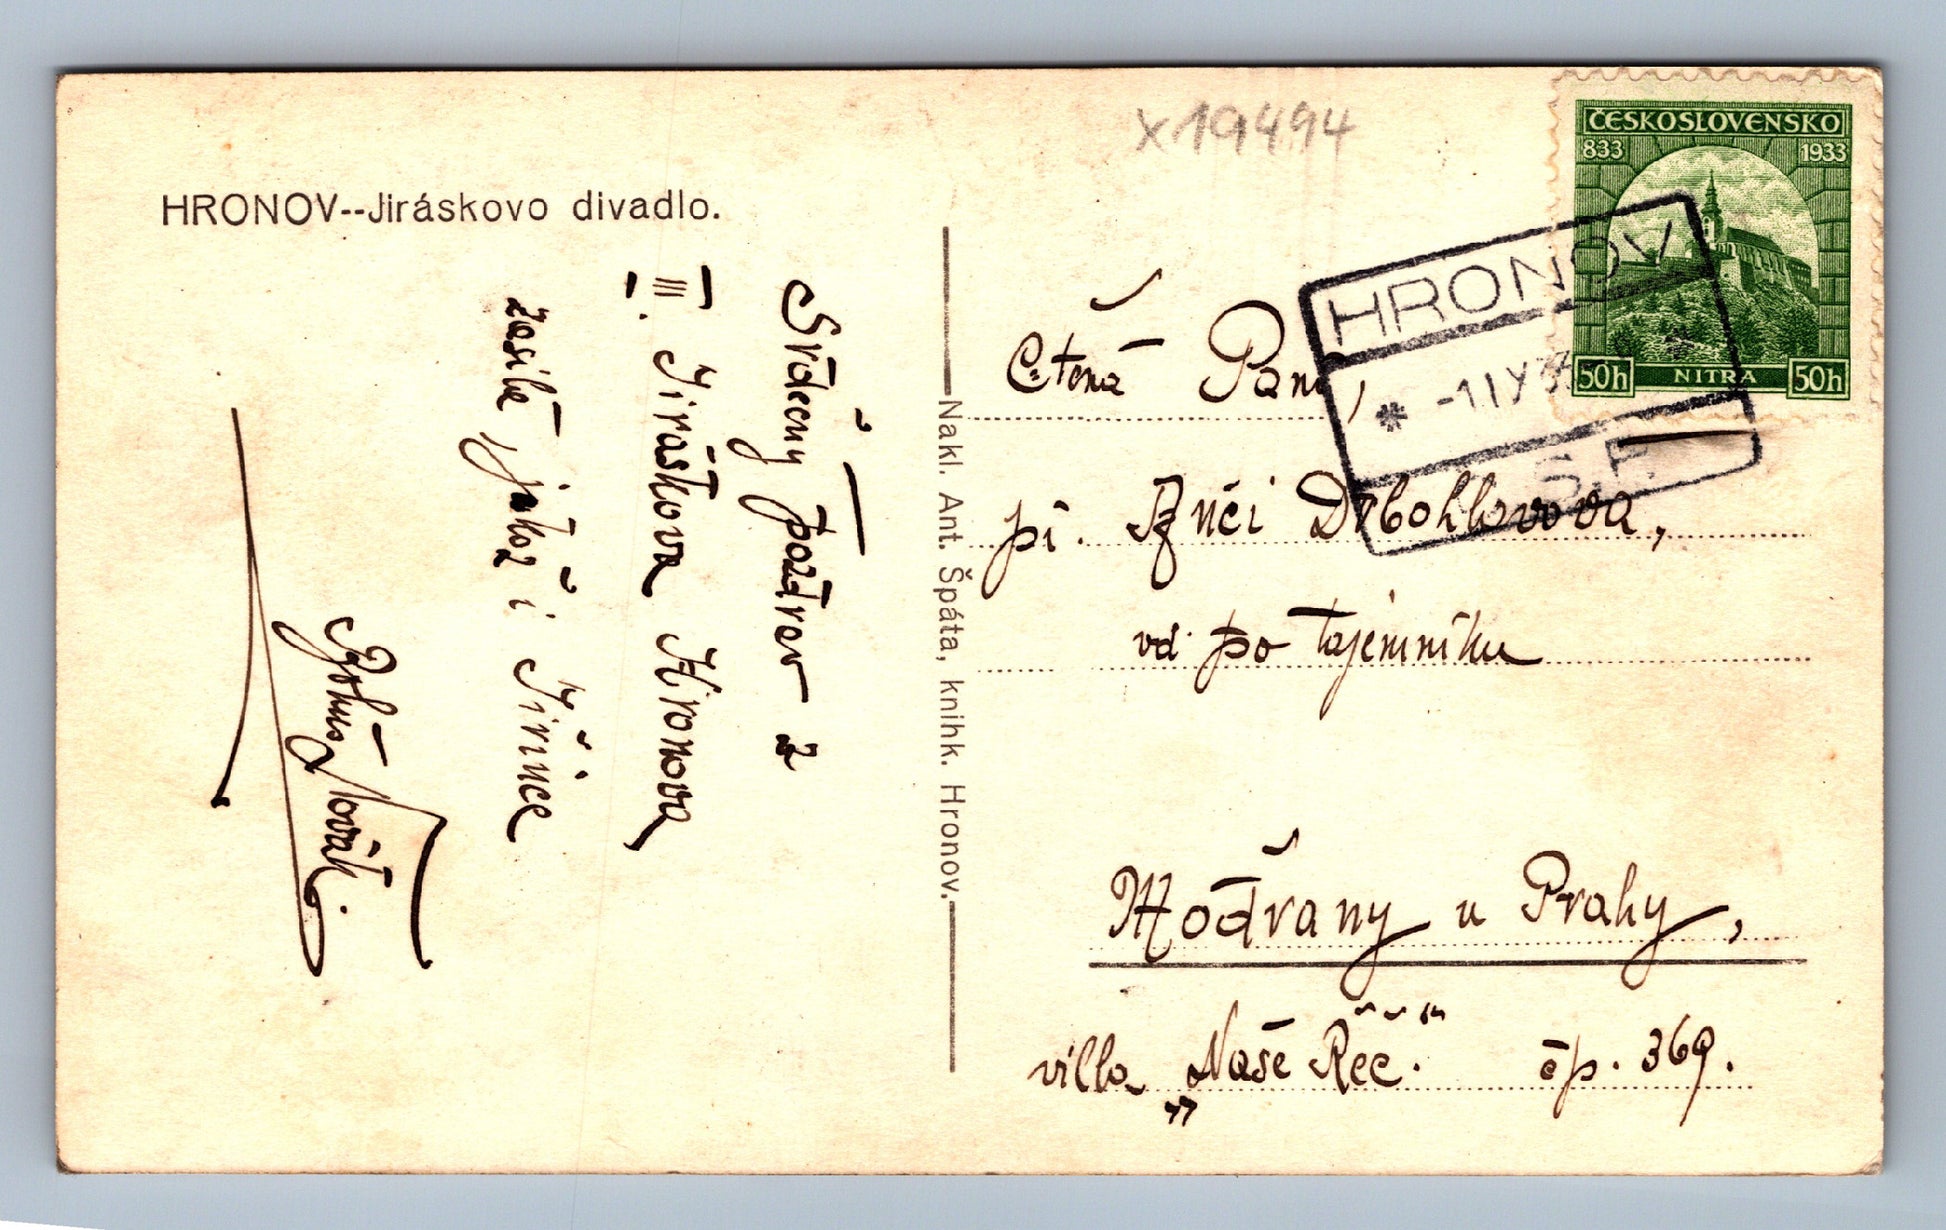 x19494
HRONOV--Jiráskovo divadlo.
Srdečný pozdrav z
III. Jiráskova Hronova
zasílá jakož i Jiřince
Boh. Novák.
Nakl. Ant. Špáta, knihk. Hronov.
ČESKOSLOVENSKO
833 1933
50h NITRA 50h
HRONOV
* -1 IX 33 *
Ctěná Paní,
pí. Drbohlavova,
vd. po tajemníku
Modřany u Prahy,
villa „Naše Řeč." čp. 369.